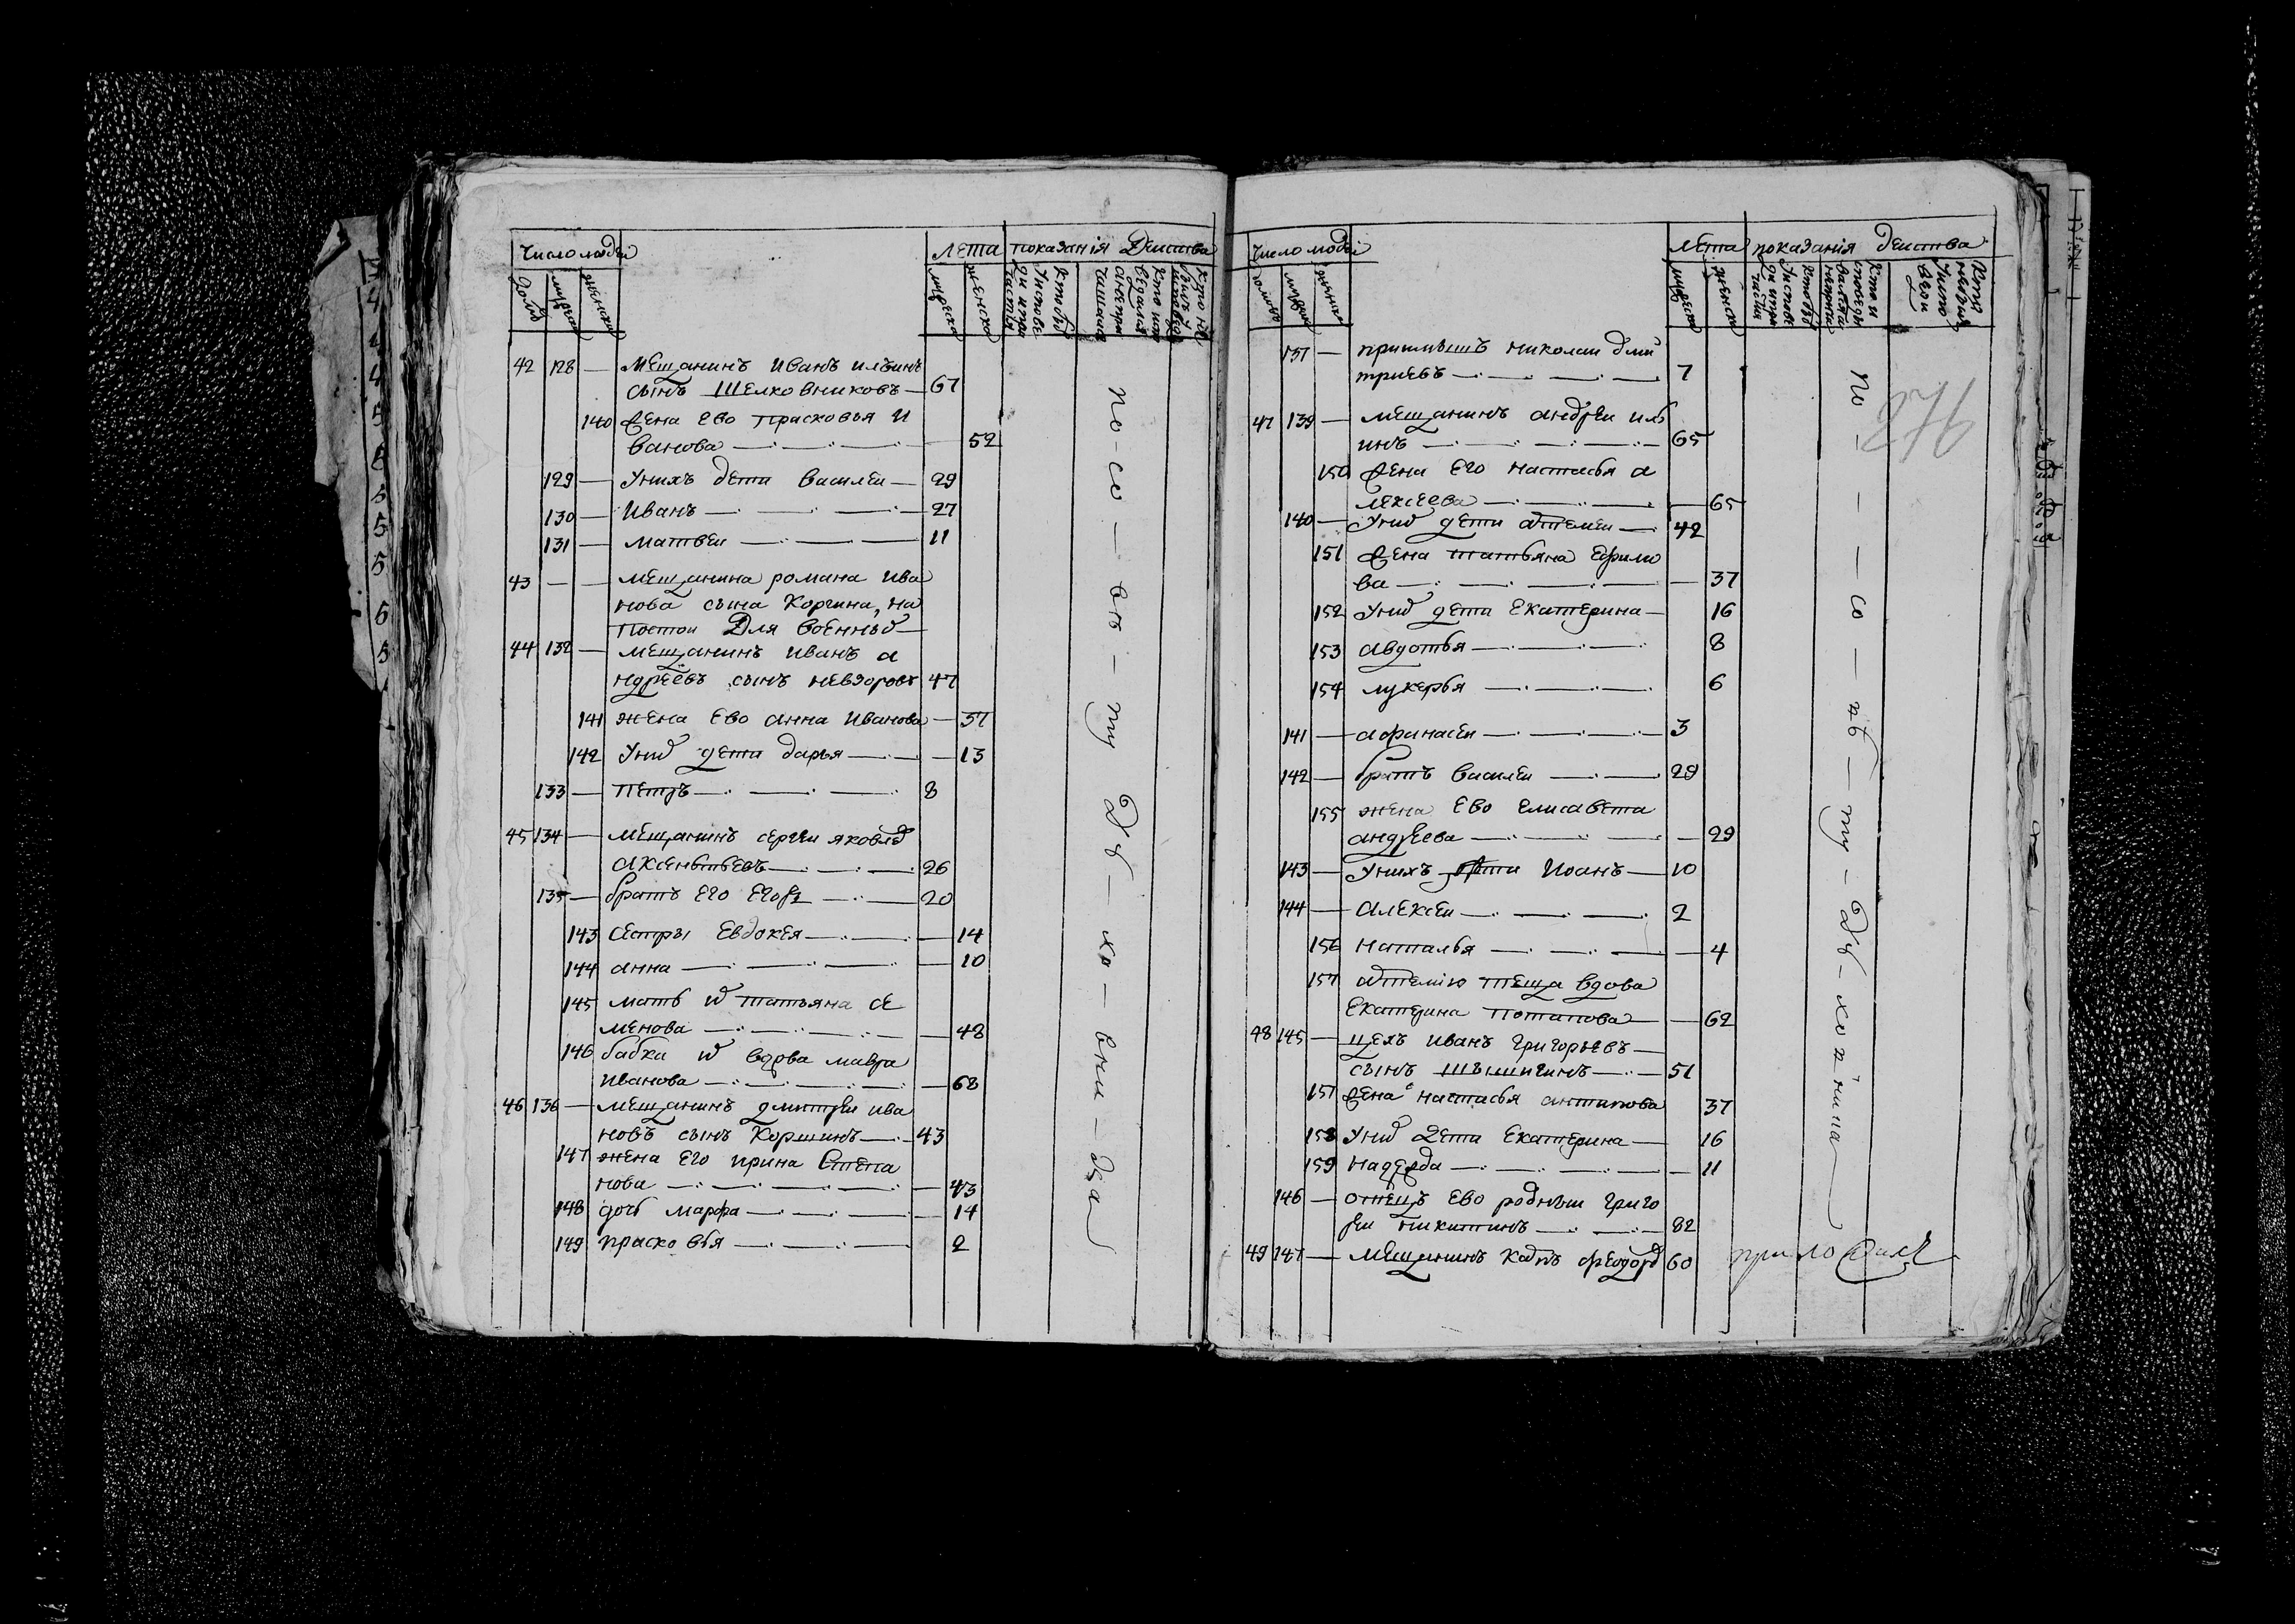 число людей
лета показанія Действа
домов
мужеска
женска
мужеска
женска
Кто был
У исповеди и при
частія
Кто испо
ведался
а не при
чащался
Кто не
был у
исповеди
42 128 — Мещанинъ Иванъ ильинъ
сынъ Шелковниковъ — 67
140 Жена Ево Прасковья И
ванова — — 52
129 — Унихъ дети Василеи — 29
130 — Иванъ — 27
131 — матвеи — 11
43 — — мещанина романа ива
нова сына Коргина, на
постои Для военных —
44 132 — мещанинъ Иванъ а
ндреевъ сынъ невзоровъ 47
141 жена Ево анна Иванова — 37
142 Уних дети дарья — — 13
133 — Петръ — 8
45 134 — мещанинъ сергеи яковлев
Аксеньтьевъ — 26
135 — братъ Его Егоръ — 20
143 сестры Евдокея — — 14
144 анна — — 10
145 мать их татьяна се
менова — — 48
146 бабка их вдова мавра
Иванова — — 68
46 136 — мещанинъ дмитреи ива
новъ сынъ Коршинъ — 43
147 жена Его ирина Степа
нова — — 43
148 дочь марфа — — 14
149 праско вья — 2
по - со - сто - ту Дѣ - хо - вни - да
число людей
лета показанія действа
домовъ
мужеска
женска
мужеска
женска
137 — приимышъ николаи дми
триевъ — 7
47 139 — мещанинъ андреи иль
инъ — 65
150 Жена Его настасья а
лексеева — — 65
140 — Уних дети Артемеи — 42
151 Жена татьяна Ефимо
ва — — 37
152 Уних дети Екатерина — 16
153 авдотья — 8
154 лукерья — 6
141 — афанасеи — 3
142 — братъ василеи — 29
155 жена Ево Елисавета
андреева — — 29
143 — Унихъ дети Иоанъ — 10
144 — Алексеи — 2
156 наталья — — 4
157 артемию теща вдова
Екатерина потапова — — 62
48 145 — цехъ Иванъ григорьевъ —
сынъ шышигинъ — 51
157 Жена настасья антипова 37
158 Уних дети Екатерина — 16
159 надежда — — 11
146 — отецъ Ево родныи григо
реи никитинъ — 82
49 147 — мещанинъ феодоръ 60